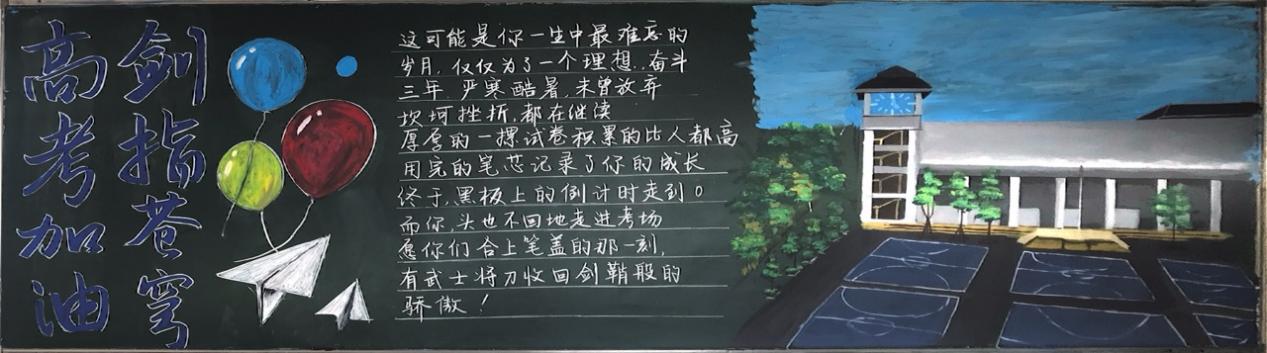 剑指苍穹
高考加油
这可能是你一生中最难忘的
岁月，仅仅为了一个理想，奋斗
三年，严寒酷暑，未曾放弃
坎坷挫折，都在继续
厚厚的一摞试卷积累的比人都高
用完的笔芯记录了你的成长
终于，黑板上的倒计时走到0
而你，头也不回地走进考场
愿你们合上笔盖的那一刻，
有武士将刀收回剑鞘般的
骄傲！